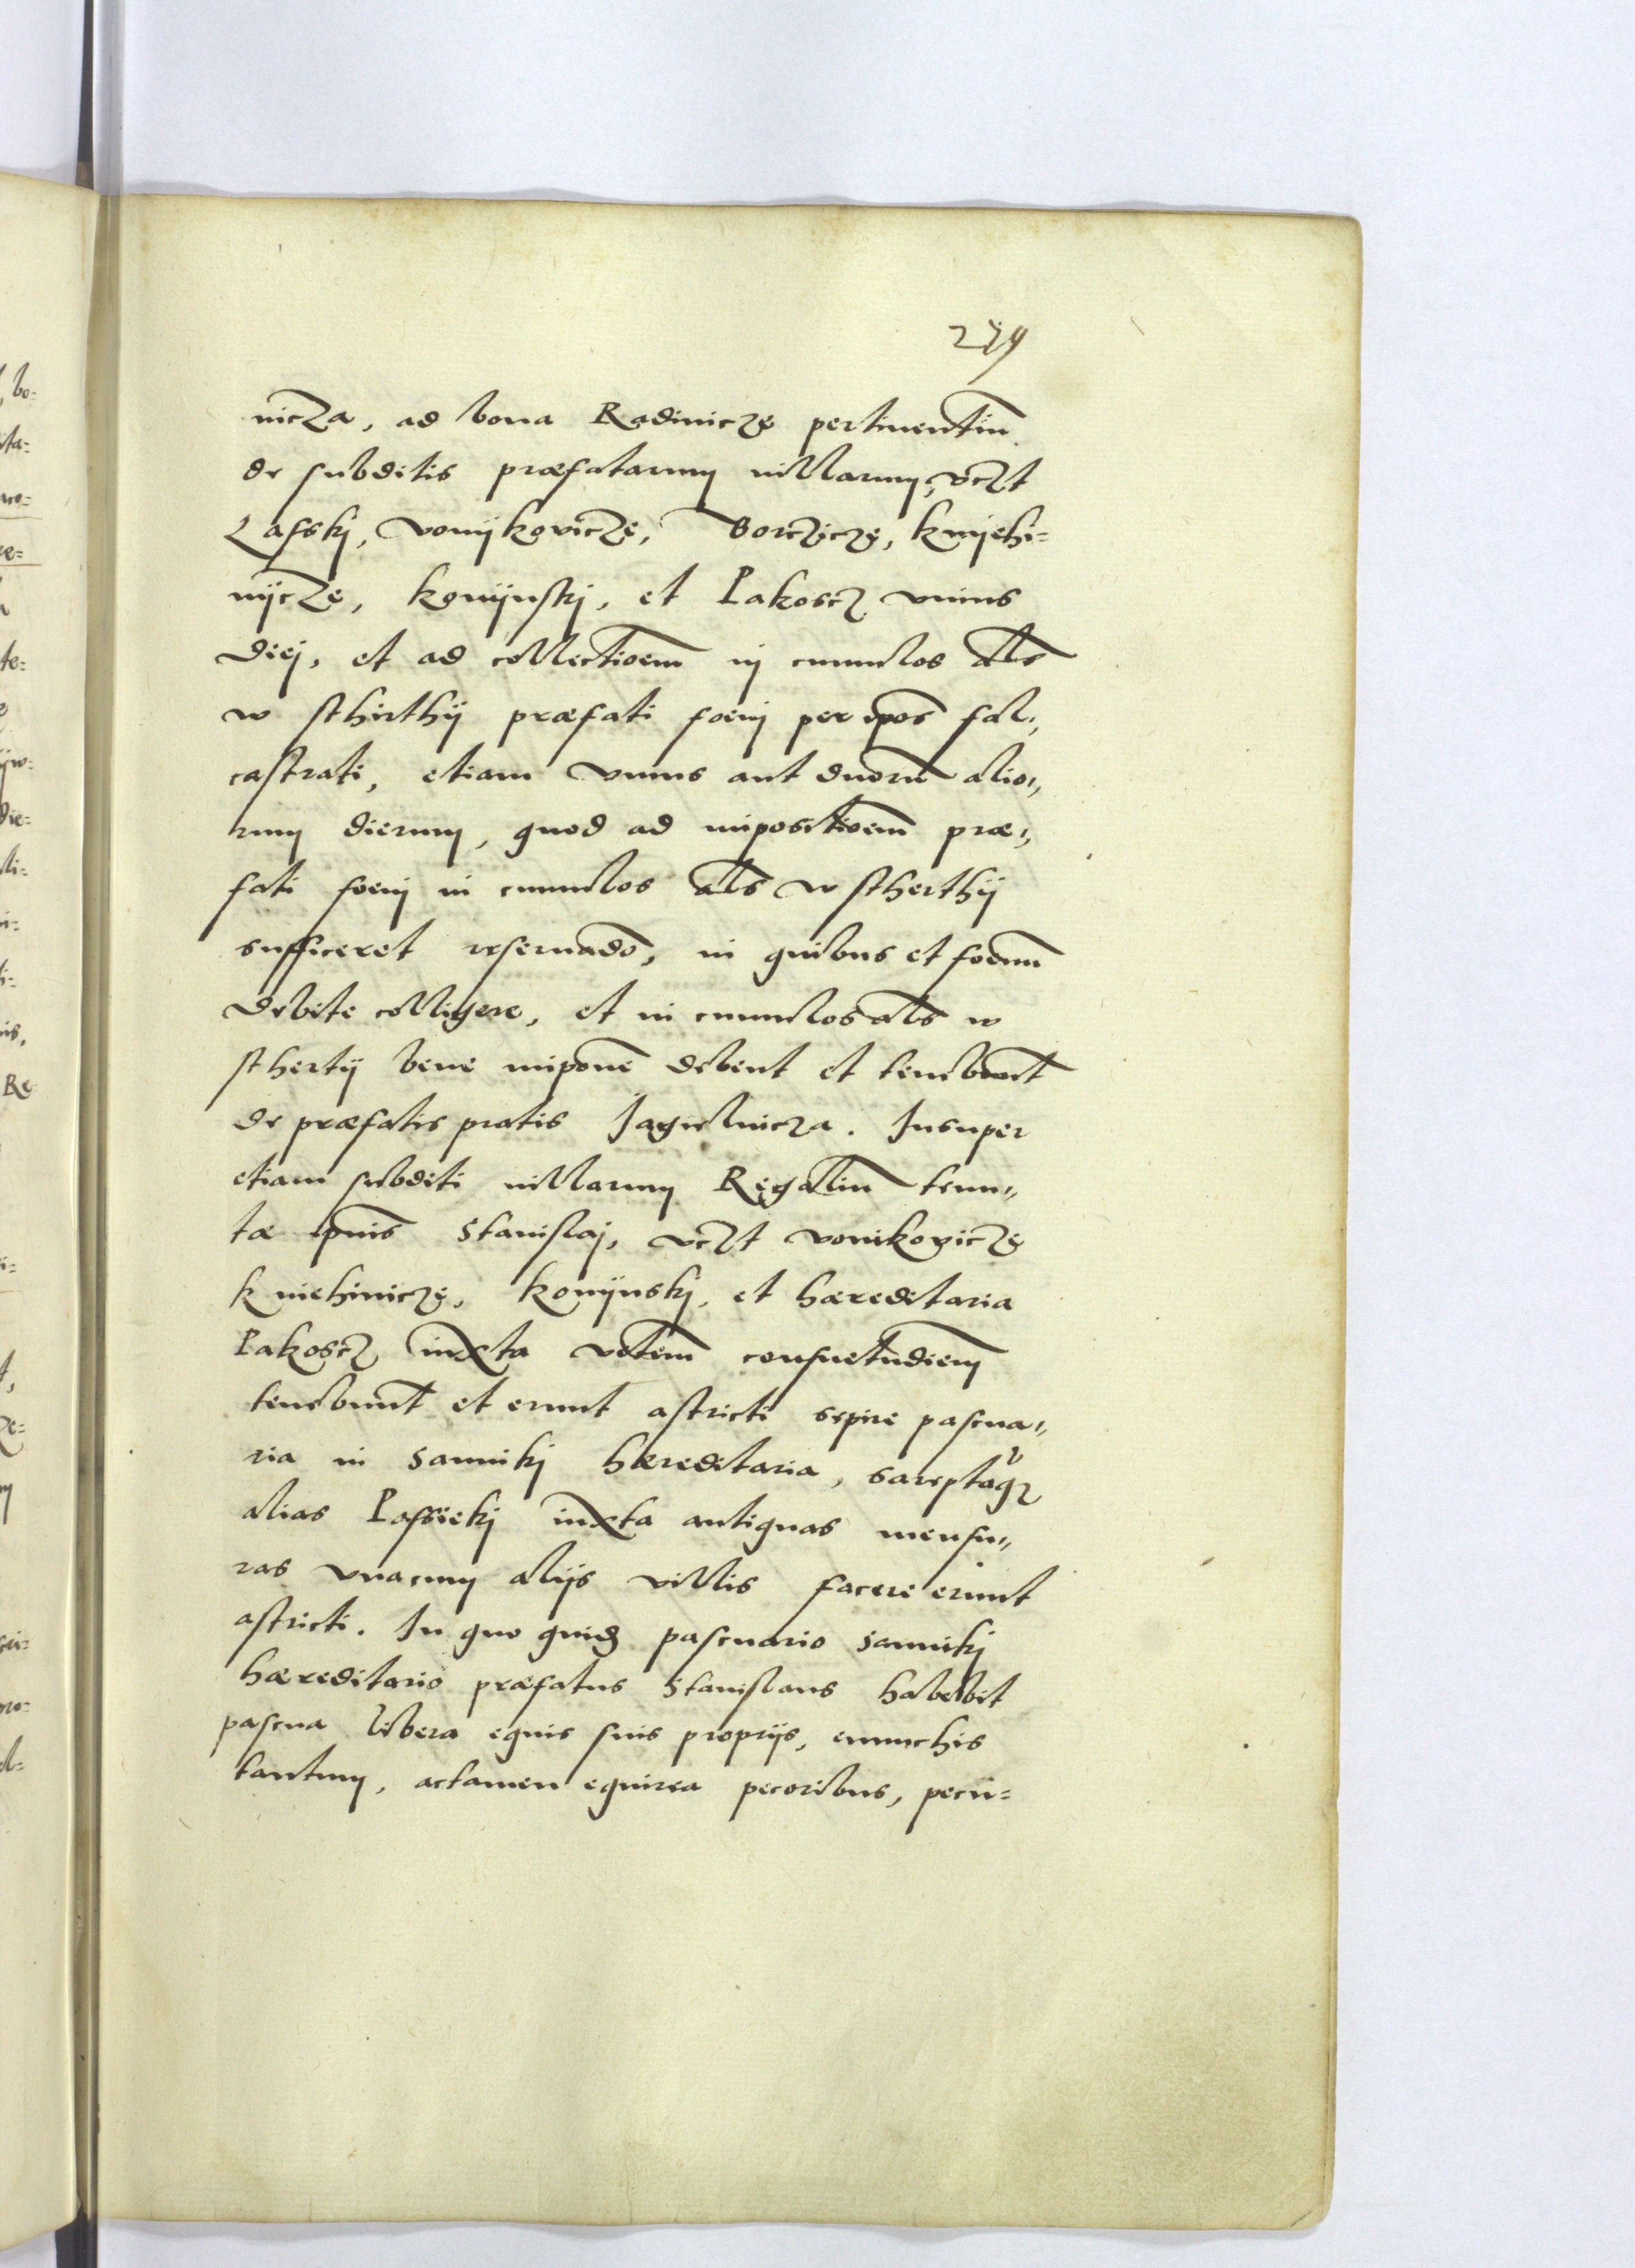 279
nicza, ad bona Radinicze pertinentiū
de subditis præfatarum villarum, vczt
Laski, vonykovicze, Sorczicze, knyehi=
nycze, konyuski, et Pakoscz vnius
diej, et ad collectioem in cumulos als
w sthirthy præfati foenj per ipos fal,,
castrati, etiam vnius aut duorū alio,,
rum dierum, quod ad impositioem præ,,
fati foenj in cumulos als w stherthy
sufficeret reseruādo, in quibus et foenum
debite colligere, et in cumulos als w
stherty bene imponē debent et tenebunt
de præfatis pratis Jagielnicza. Insuper
etiam subditi villarum Regaliū tenu,,
tæ ipius Stanislaj, vczt vonikovicze
kniehinicze, konyuski, et hæreditaria
Pakoscz iuxta vetem consuetudiem
tenebunt et erunt astricti sepire pascua,,
ria in Sanniki hæreditaria, sareptaqz
alias Passieki iuxta antiquas mensu,,
ras vnacum alijs villis facere erunt
astricti. In quo quidz pascuario Sanniki
hæreditario præfatus Stanislaus habebit
pascua libera equis suis proprijs, eunuchis
tantum, actamen equirea pecoribus, pecu=